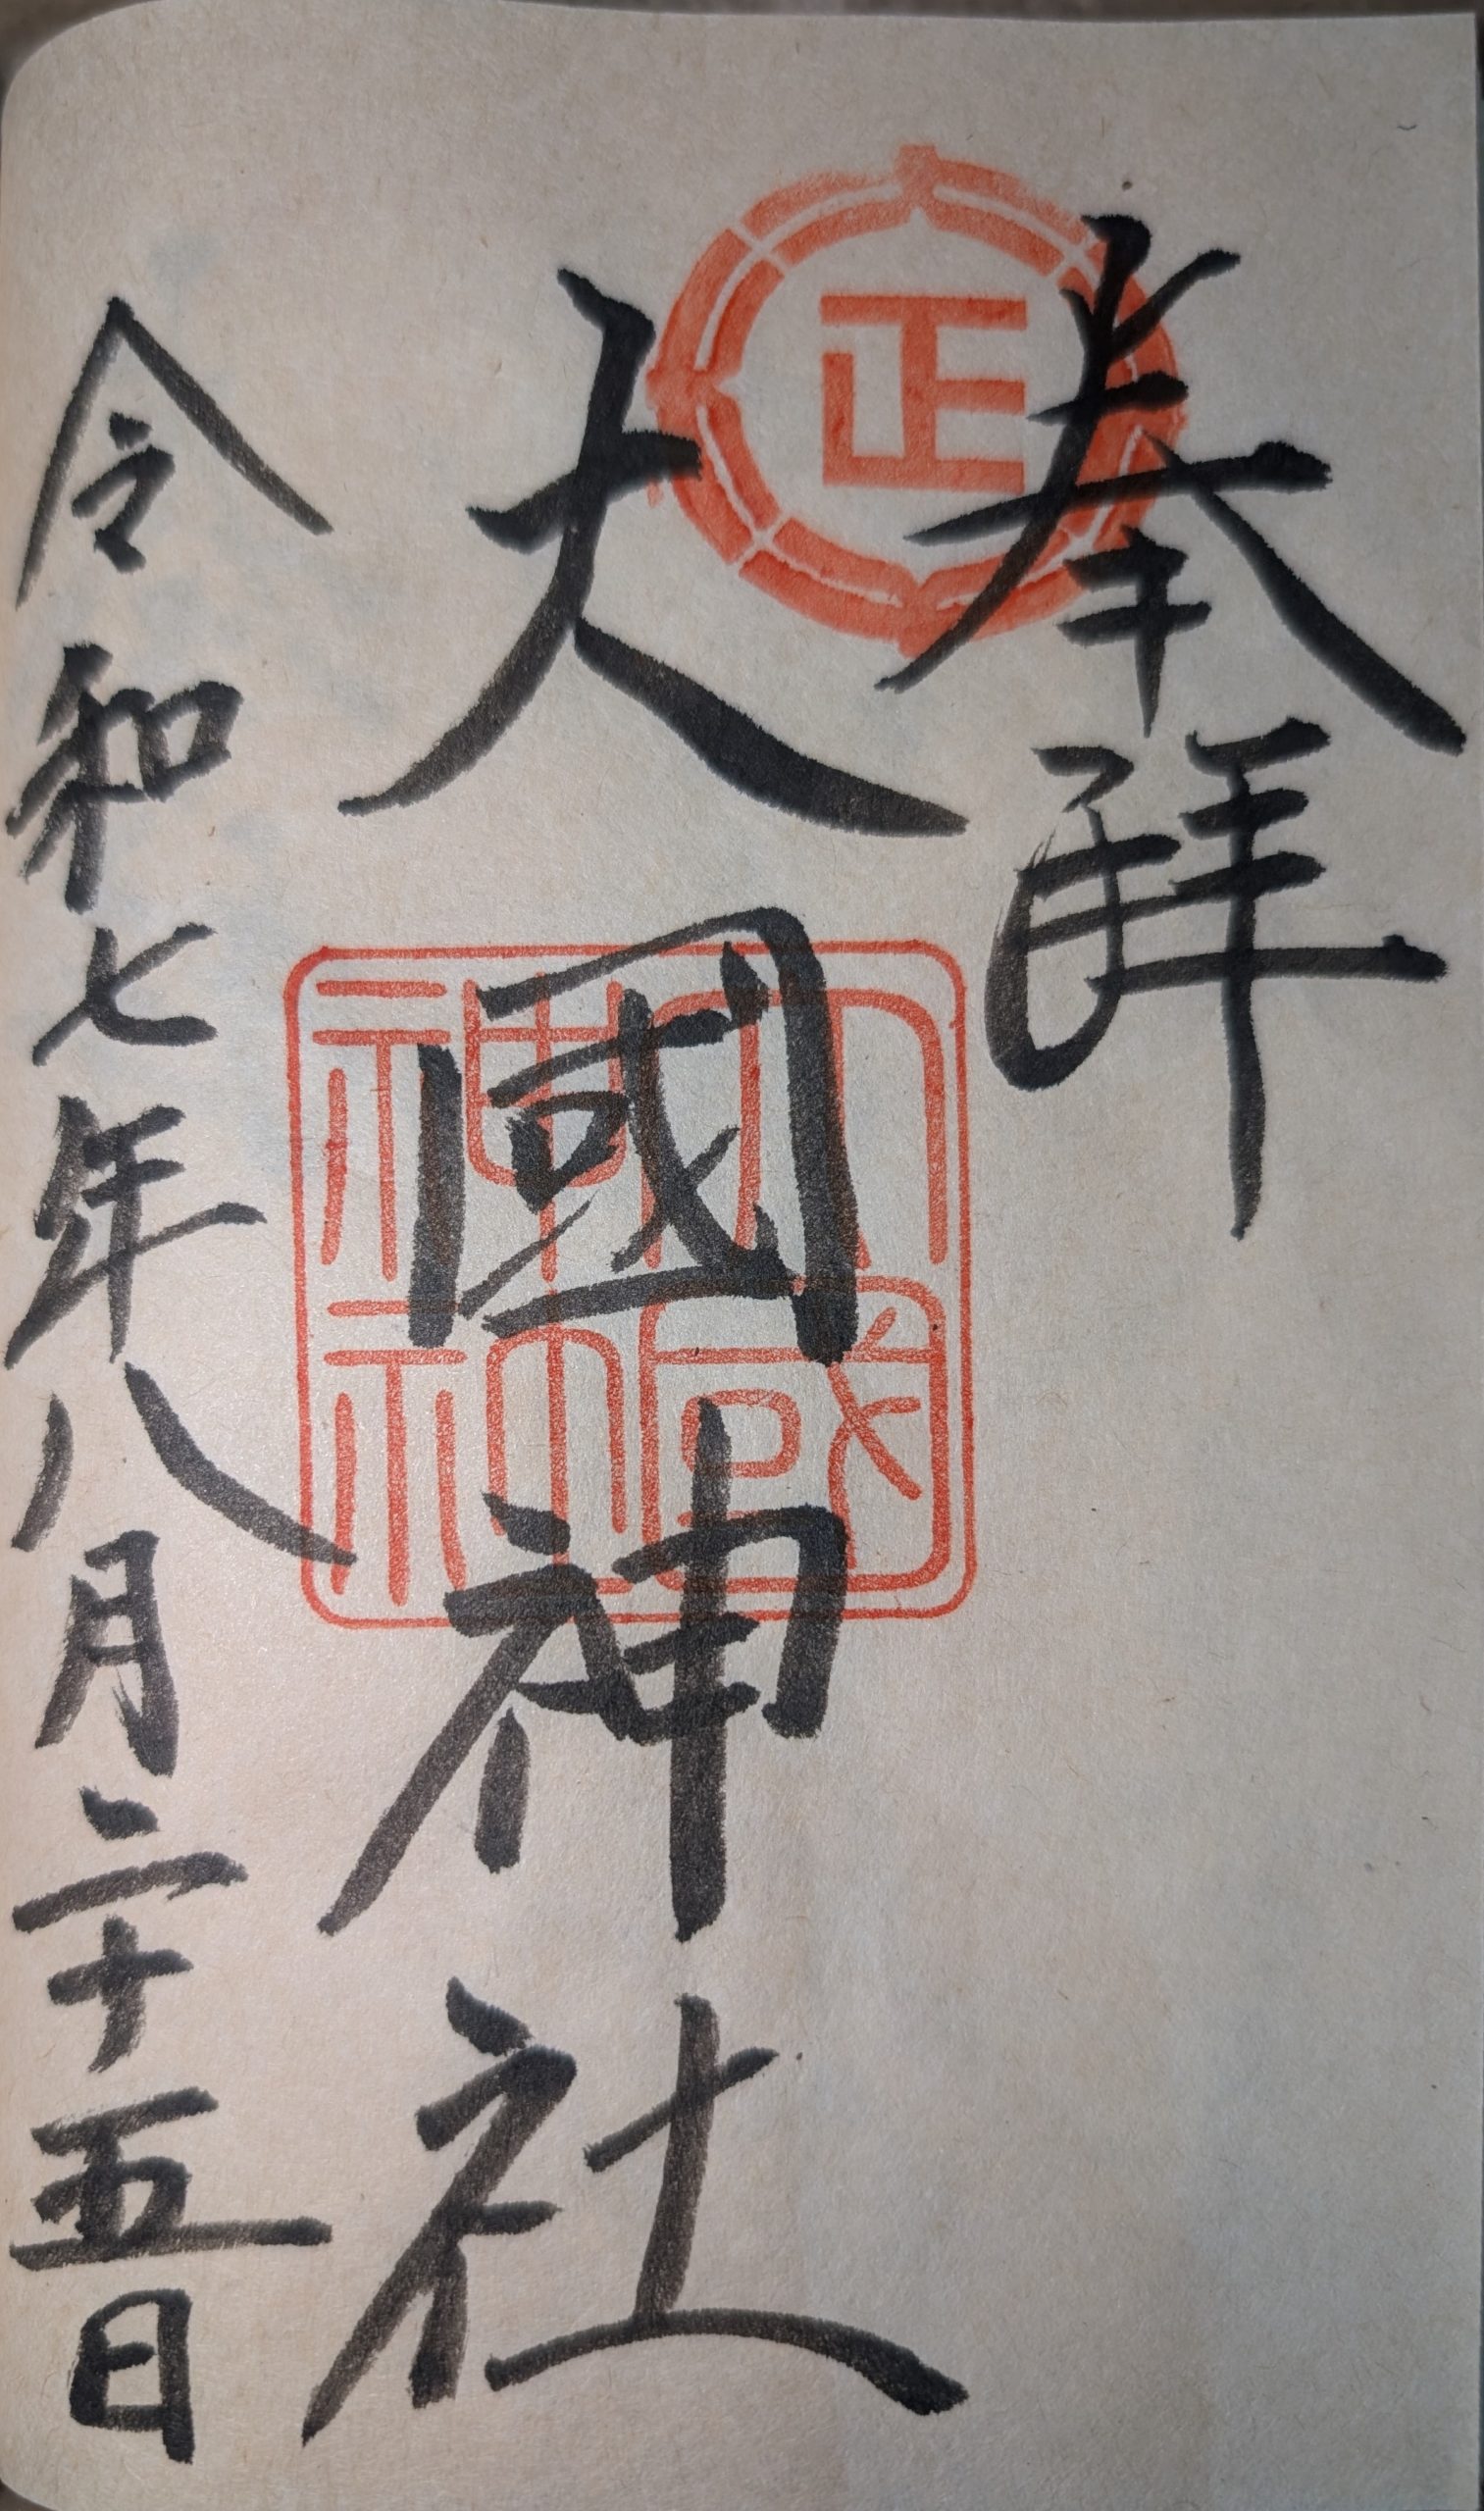 奉拜
正
大國神社
大國神神
令和七年八月二十五日